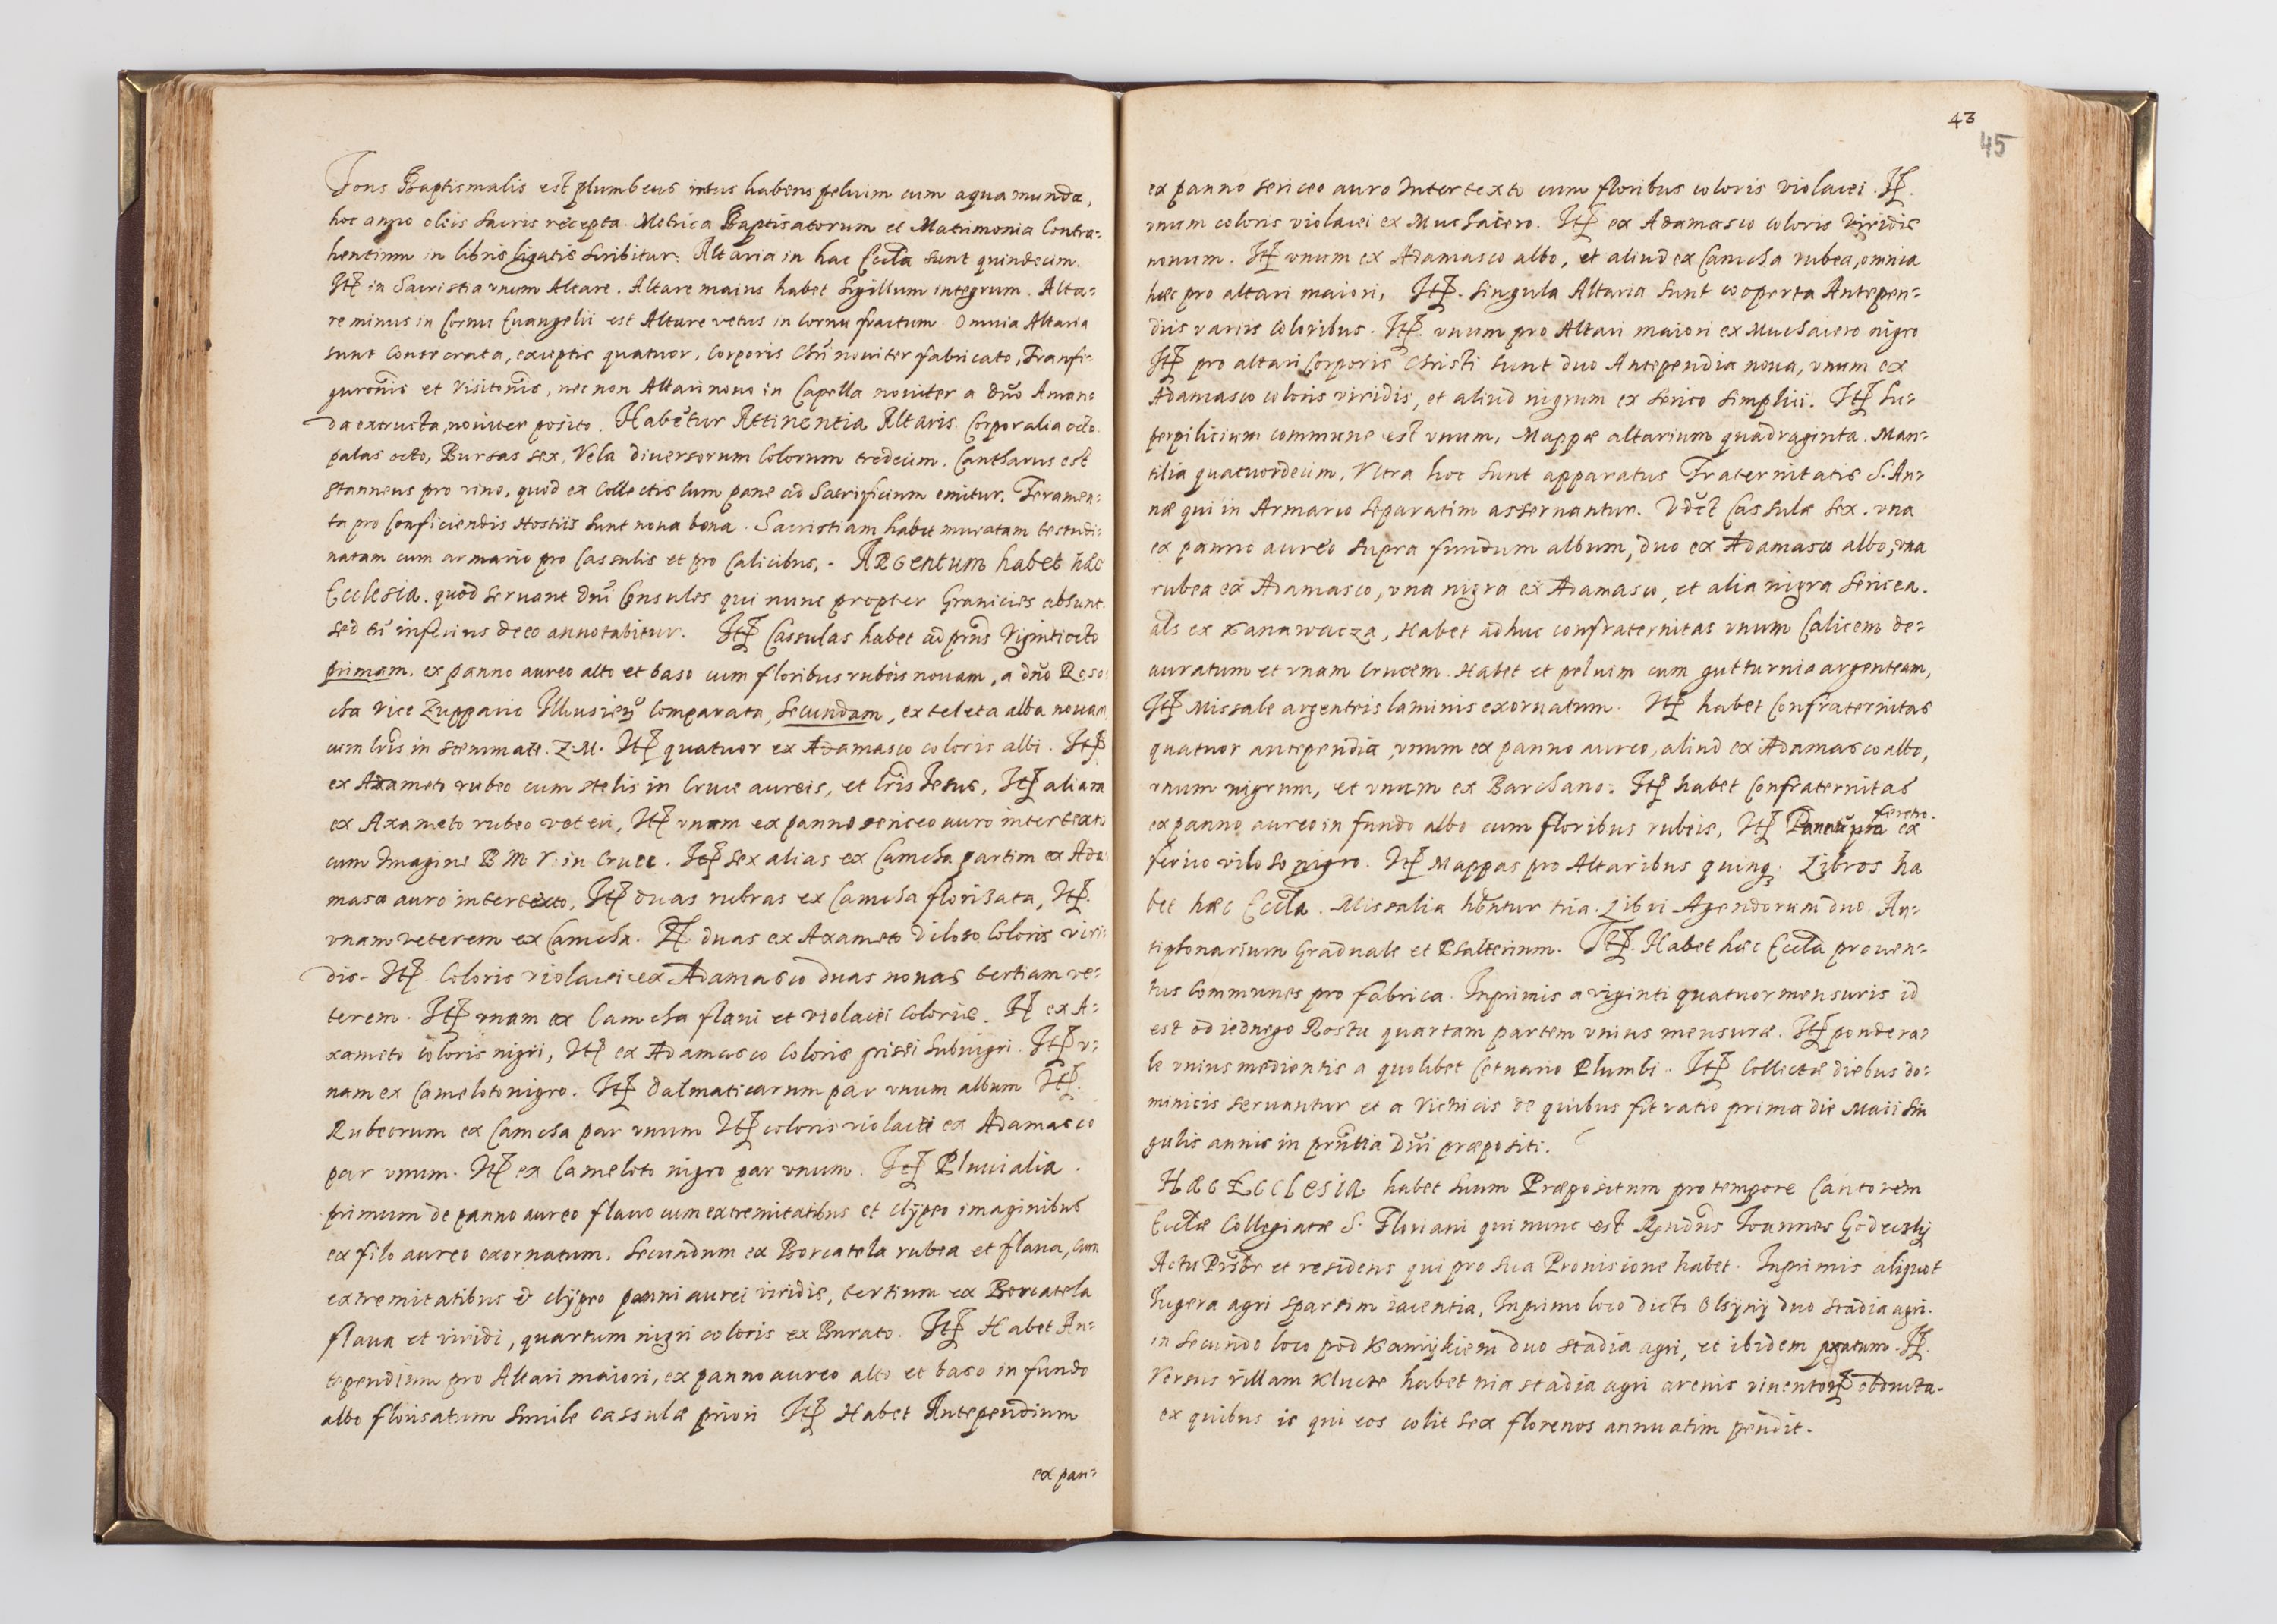 Fons Baptismalis est plumbeus intus habens peluim cum aqua munda,
hoc anno oleis sacris recepta. Metrica Baptisatorum et Matrimonia Contra=
hentium in libris ligatis scribitur. Altaria in hac Eccla sunt quindecim.
Itē in Sacristia vnum Altare. Altare maius habet Sigillum integrum. Alta=
re minus in Cornu Euangelii est Altare vetus in Cornu fractum. Omnia Altaria
sunt Consecrata, exceptis quatuor, Corporis Chri nouiter fabricato, Transfi=
guronis et Visitonis, nec non Altari nouo in Capella nouiter a dno Aman=
da extructa, nouiter posito. Habetur Attinentia Altaris. Corporalia octo
palas octo, Bursas sex, Vela diuersorum Colorum tredecim. Cantharus est
stanneus pro vino, quod ex Collectis cum pane ad Sacrificium emitur. Feramen=
ta pro Conficiendis Hostiis sunt noua bona. Sacristiam habet muratam testudi=
natam cum armario pro Cassulis et pro Calicibus. - Argentum habet hæc
Ecclesia. quod seruant dni Consules qui nunc propter Granicies absunt.
sed tn inferius de eo annotabitur. Itē Cassulas habet ad prns Vigintiocto
primam. ex panno aureo alto et baso cum floribus rubeis nouam, a dno Roso=
cha vice Zuppario Comparata, Secundam, ex teleta alba nouam
cum lris in stemmate. Z. M. Itē quatuor ex Adamasco coloris albi. Itē
ex Axameto rubeo cum stelis in Cruce aureis, et lris Jesus, Itē aliam
ex Axameto rubeo veteri, Itē vnam ex panno sericeo auro intertexto
cum Imagine B M V. in Cruce. Itē sex alias ex Camcha partim ex Ada
masco auro intertexto, Itē duas rubras ex Camcha florisata, Itē.
vnam veterem ex Camcha. It duas ex Axameto viloso Coloris viri=
dis. Itē. Coloris violacei ex Adamasco duas nouas tertiam ve=
terem. Itē vnam ex Camcha flaui et violacei Coloris. It ex A=
xameto coloris nigri, Itē ex Adamasco Coloris grisei subnigri. Itē v=
nam ex Cameloto nigro. Itē dalmaticarum par vnum album Itē.
Rubeorum ex Camcha par vnum Itē coloris violacei ex Adamasco
par vnum. Itē ex Cameloto nigro par vnum. Itē Pluuialia.
primum de panno aureo flauo cum extremitatibus et clypeo imaginibus
ex filo aureo exornatum. Secundum ex Borcatela rubea et flaua, cum
extremitatibus & clypeo panni aurei viridis, tertium ex Borcatela
flaua et viridi, quartum nigri coloris ex Burato. Itē Habet An=
tependium pro Altari maiori, ex panno aureo alto et baso in fundo
albo florisatum simile cassulæ priori Itē Habet Antependium
ex pan=
43
45
ex panno sericeo auro Intertexto cum floribus coloris violacei. It.
vnum coloris violacei ex Muchaiero. Itē ex Adamasco coloris viridis
nouum. Itē vnum ex Adamasco albo, et aliud ex Camcha rubea, omnia
hæc pro altari maiori, Itē. singula Altaria sunt cooperta Antepen=
diis variis coloribus. Itē. vnum pro Altari maiori ex Muchaiero nigro
Itē pro altari Corporis Christi sunt duo Antependia noua, vnum ex
Adamasco coloris viridis, et aliud nigrum ex serico simplici. Itē Su=
perpilicium commune est vnum, Mappæ altarium quadraginta. Man=
tilia quatuordecim, Vltra hoc sunt apparatus Fraternitatis S. An=
næ qui in Armario separatim asseruantur. Vdct Cassulæ sex. vna
ex panno aureo supra fundum album, duo ex Adamasco albo, vna
rubea ex Adamasco, vna nigra ex Adamasco, et alia nigra sericea.
als ex Kanawacza, Habet adhuc confraternitas vnum Calicem de=
auratum et vnam Crucem. Habet et peluim cum gutturnia argenteam,
Itē Missale argentris laminis exornatum. Itē habet Confraternitas
quatuor antependia, vnum ex panno aureo, aliud ex Adamasco albo,
vnum nigrum, et vnum ex Barchano. Itē habet Confraternitas
ex panno aureo in fundo albo cum floribus rubeis, Itē pro feretro ex
serico viloso nigro. Itē Mappas pro Altaribus quinq; Libros ha
bet hæc Eccla. Missalia hbntur tria. Libri Agendorum duo. An=
tiphonarium Graduale et Psalterium. Itē. Habet hæc Eccla prouen=
tus Communes pro fabrica. Inprimis a viginti quatuor mensuris id
est od iednego Rostu quartam partem vnius mensuræ. Itē pondera=
le vnius medientis a quolibet Cetnario Plumbi. Itē Collectæ diebus do=
minicis seruantur et a Vitricis de quibus fit ratio prima die Maii sin
gulis annis in prntia dni præpositi.
Hæc Ecclesia habet suum Præpositum pro tempore Cantorem
Ecclæ Collegiatæ S. Floriani qui nunc est Rndus Joannes Godecsky
Actu Prsbr et residens qui pro sua Prouisione habet. Inprimis aliquot
Iugera agri sparsim iacentia, In primo loco dicto Olsyny duo stadia agri.
in secundo loco pod Kamykiem duo stadia agri, et ibidem pratum. It.
Versus villam Klucze habet tria stadia agri arenis obructa.
ex quibus is qui eos colit sex florenos annuatim pendit.